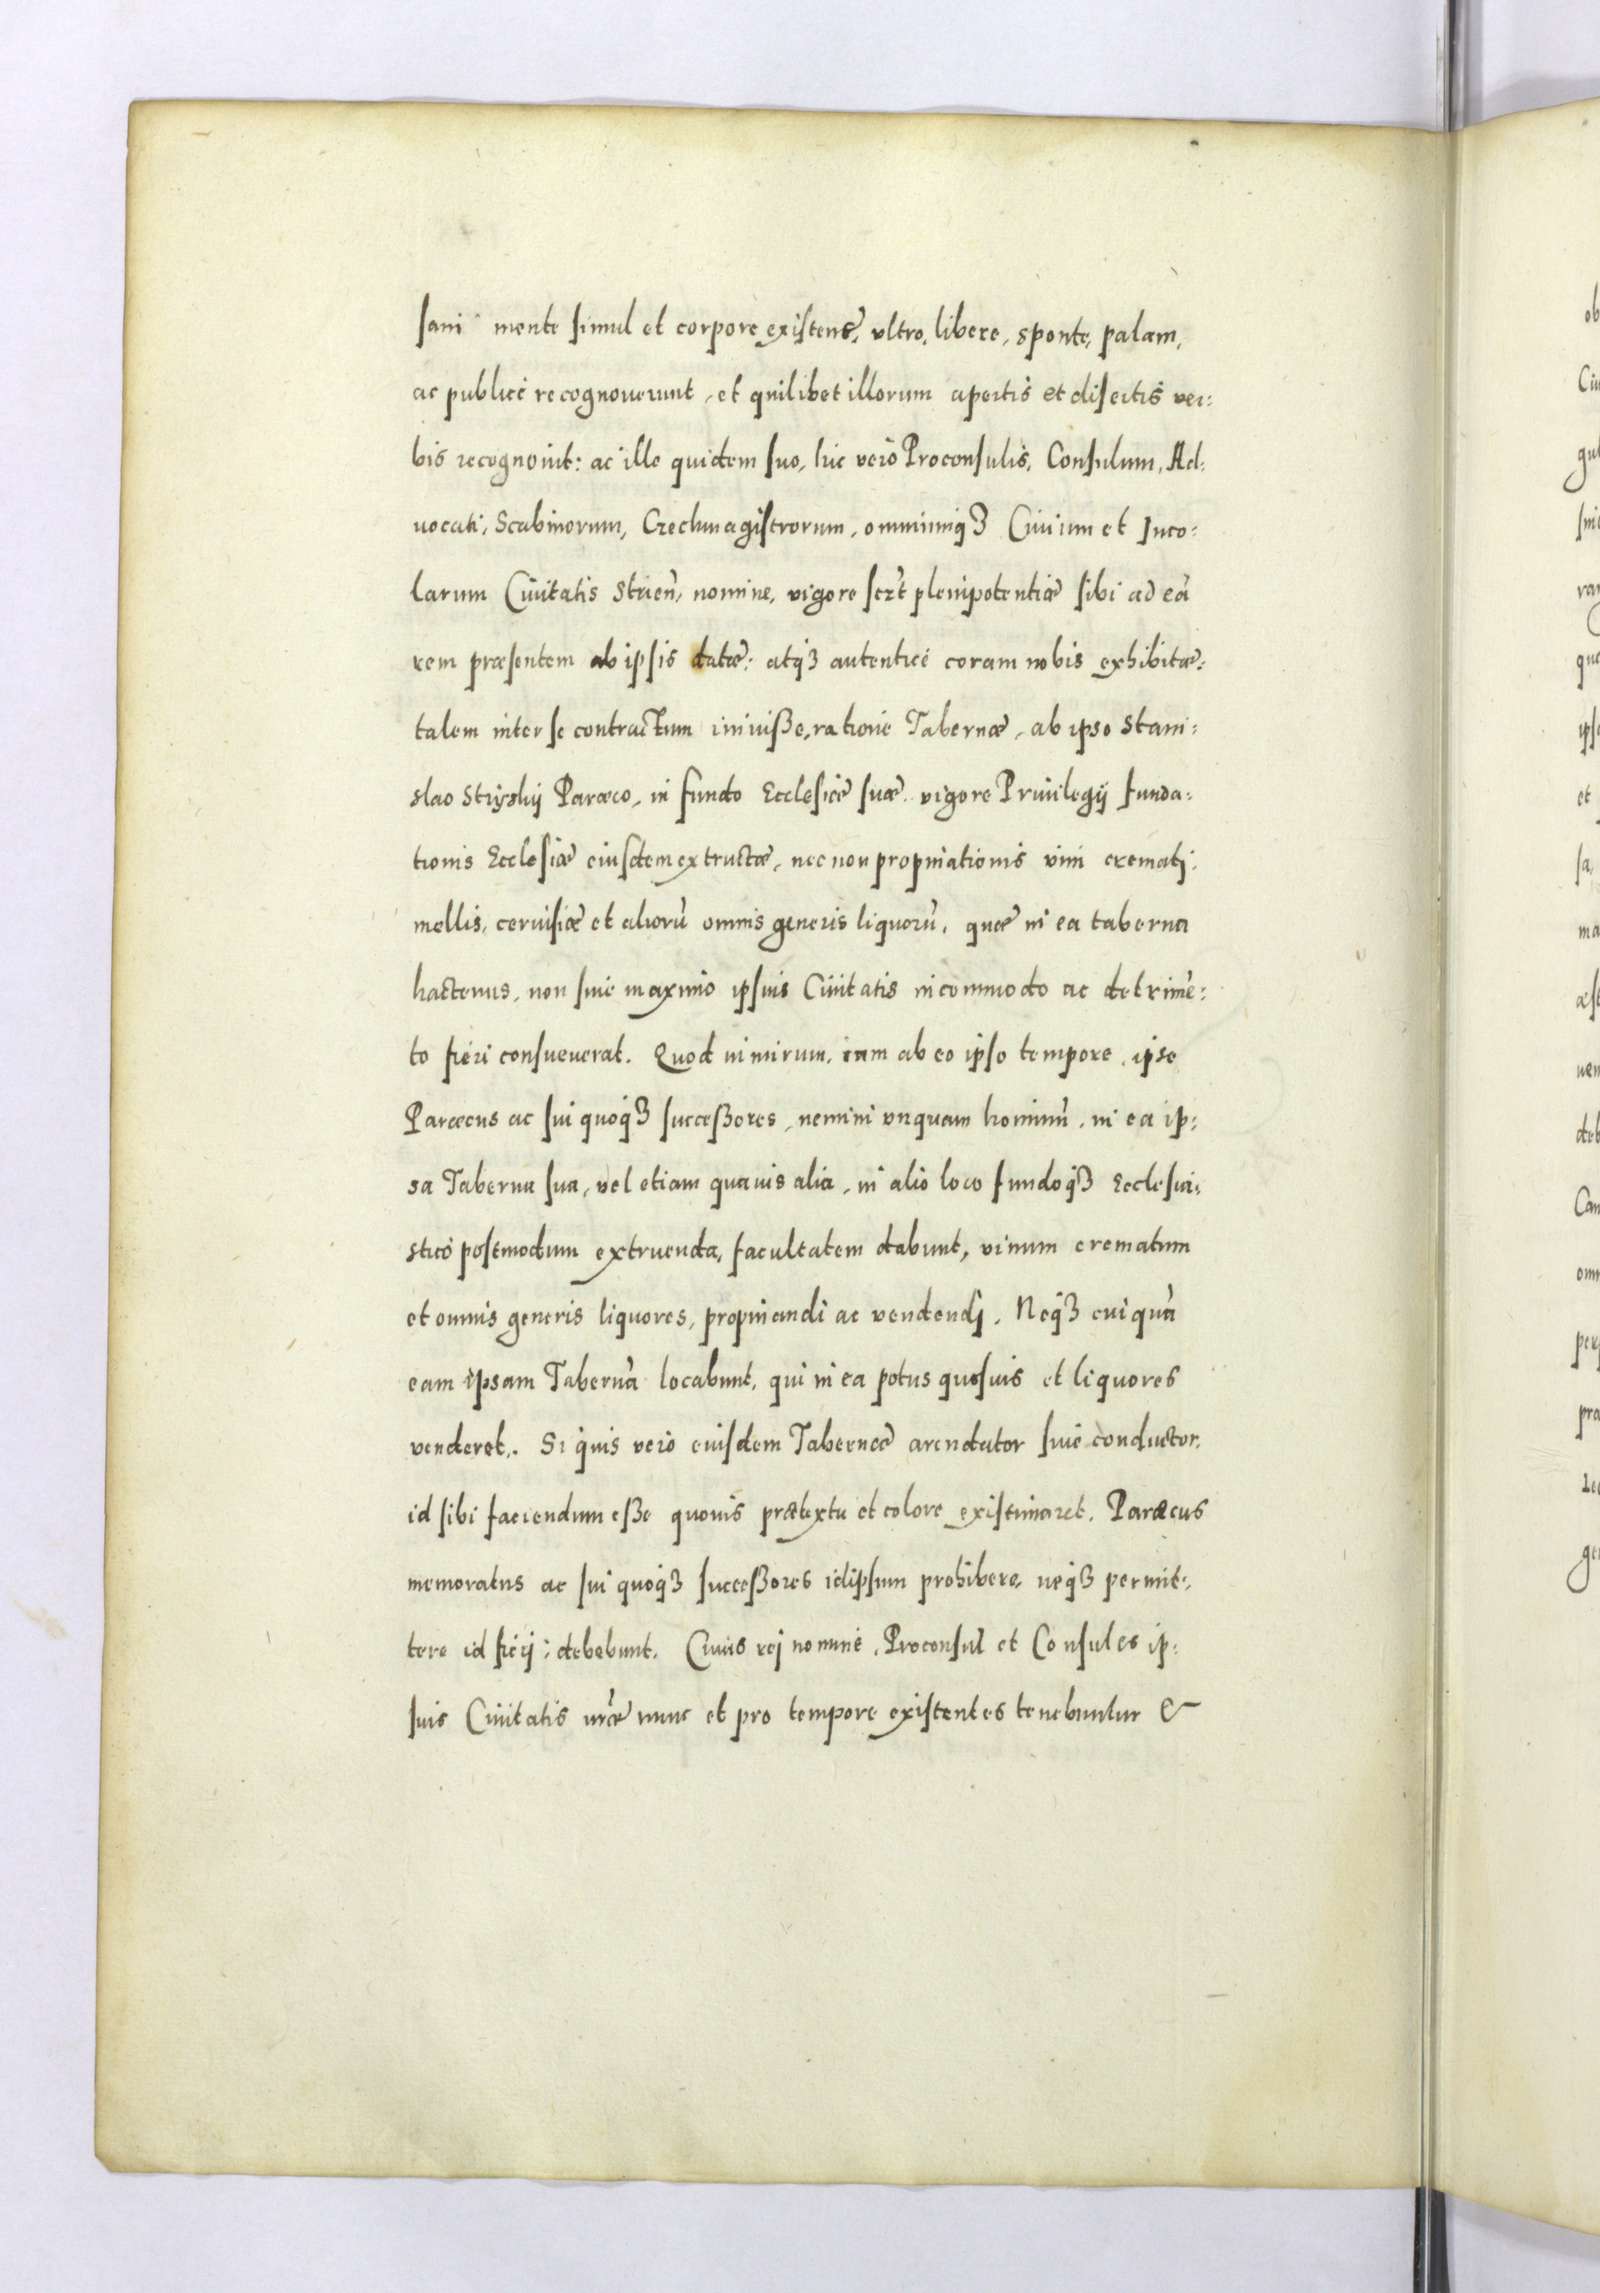 sani mente simul et corpore existens̃, ultro, libere, sponte, palam,
ac publicè recognouerunt, et quilibet illorum apertis et disertis ver:
bis recognouit: ac ille quidem suo, hic verò Proconsulis, Consulum, Ad:
uocati, Scabinorum, Czechmagistrorum, omniumqȝ Ciuium et Inco:
larum Ciuitatis Strien̄, nomine, vigore scrt̄ plenipotentiæ sibi ad eā
rem præsentem ab ipsis datæ: atqȝ autenticè coram nobis exhibitæ:
talem inter se contractum iniuisse, ratione Tabernæ, ab ipso Stani:
slao Stryskij Paræco, in fundo Ecclesiæ suæ vigore Priuilegij funda:
tionis Ecclesiæ eiusdem extructæ, nec non propinationis vini cremati,
mellis, ceruisiæ et aliorū omnis generis liquorū, quæ in ea taberna
hactenus, non sine maximo ipsius Ciuitatis incommodo ac detrimē:
to fieri consueuerat. Quod nimirum, iam ab eo ipso tempore, ipse
Paræcus ac sui quoqȝ successores, nemini vnquam hominū, in ea ip:
sa Taberna sua, vel etiam quauis alia, in alio loco fundoqȝ Ecclesia:
stico postmodum extruenda, facultatem dabunt, vinum crematum
et omnis generis liquores, propinandi ac vendendj. Neqȝ cuiquā
eam ipsam Tabernā locabunt, qui in ea potus quosuis et liquores
venderet. Si quis verò eiusdem Tabernæ arendator siue conductor,
id sibi faciendum esse quouis prætextu et colore existimaret, Paræcus
memoratus ac sui quoqȝ successores idipsum prohibere, neqȝ permit:
tere id fierj; debebunt. Cuius rej nomine, Proconsul et Consules ip:
sius Ciuitatis nr̄æ nunc et pro tempore existentes tenebuntur &